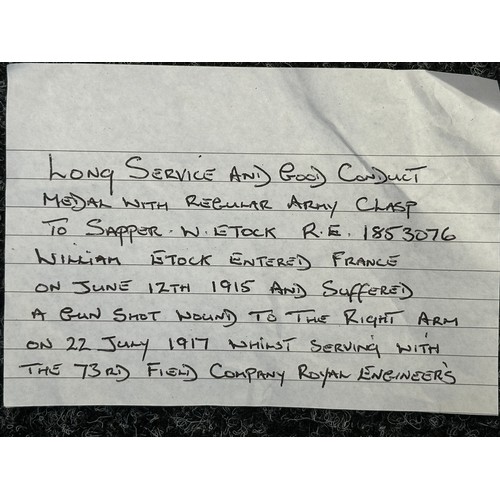 LONG SERVICE AND GOOD CONDUCT
MEDAL WITH REGULAR ARMY CLASP
TO SAPPER. W. ETOCK R.E. 1853076
WILLIAM ETOCK ENTERED FRANCE
ON JUNE 12TH 1915 AND SUFFERED
A GUN SHOT WOUND TO THE RIGHT ARM
ON 22 JULY 1917 WHILST SERVING WITH
THE 73RD FIELD COMPANY ROYAL ENGINEERS